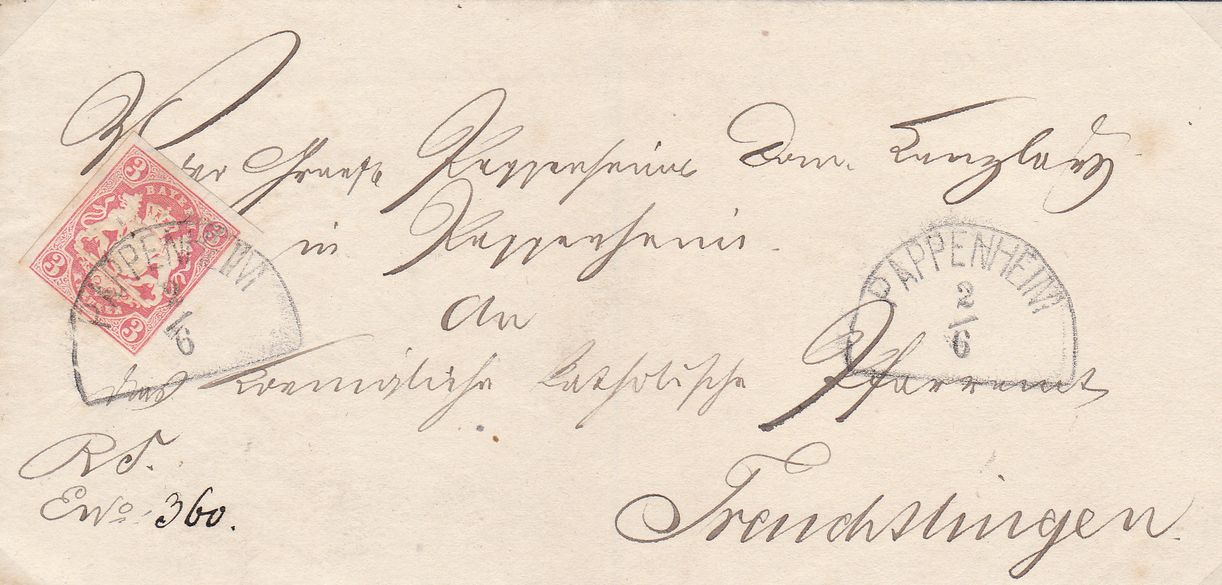 Von der Graefl. Pappenheim Dom. Kanzley
in Pappenheim.
An
das Koenigliche Katholische Pfarramt
Treuchtlingen.
R S.
E No 360.
BAYERN
3
3
3
3
PAPPENHEIM
2/6
PAPPENHEIM
2/6